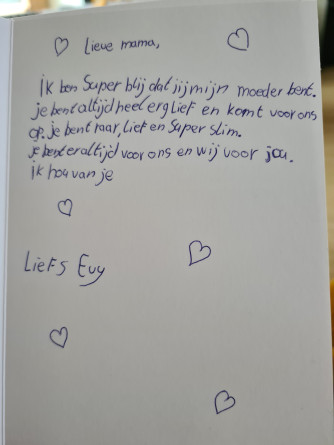 Lieve mama,
ik ben Super blij dat jij mijn moeder bent.
je bent altijd heel erg lief en komt voor ons
op. je bent naar, lief en Super slim.
je bent er altijd voor ons en wij voor jou.
ik hou van je
Liefs Evy